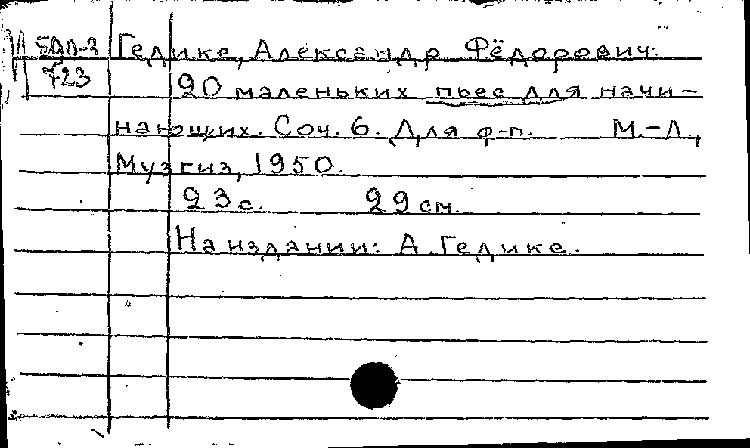 Гедике, Александр Фёдорович.
723
20 маленьких пьес для начи-
нающих. Соч. 6. Для ф-п. М.-Л.,
Музгиз, 1950.
23 с. 29 см.
На издании: А. Гедике.